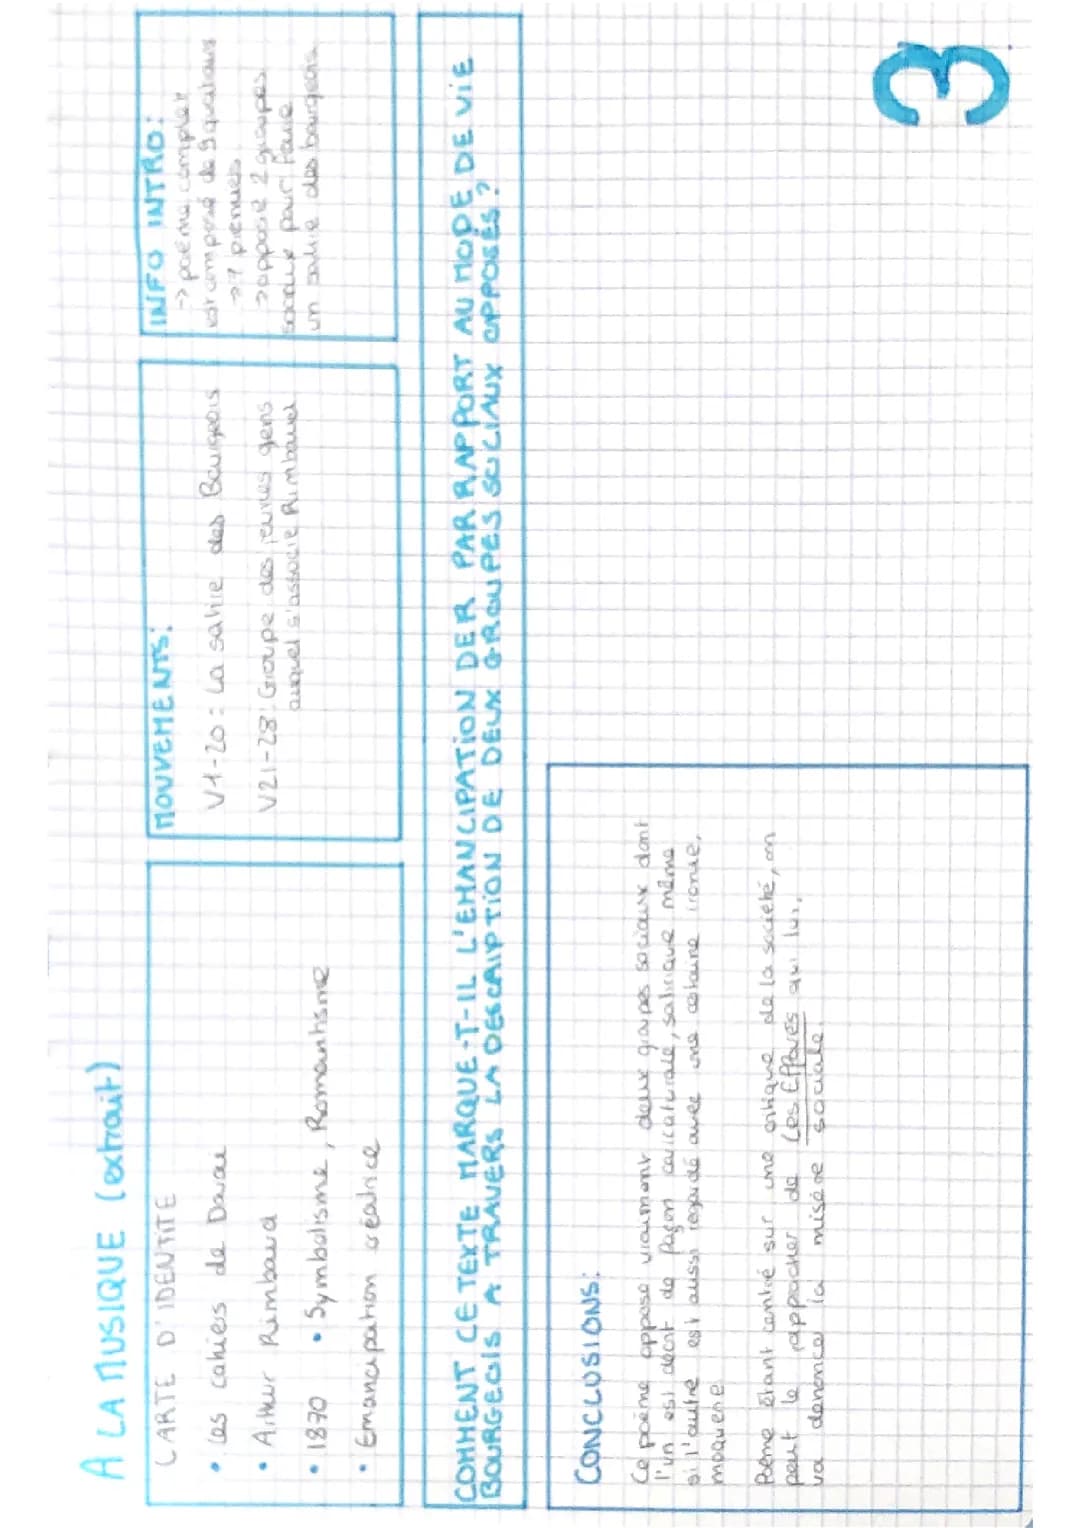 A LA MUSIQUE (extrait)
CARTE D'IDENTITE
• Les cahiers de Douai
• Arthur Rimbaud
• 1870 • Symbolisme, Romantisme
• Emancipation créatrice
MOUVEMENTS:
V1-20: La satire des Bourgeois
V21-28: Groupe des jeunes gens
auquel s'associe Rimbaud
INFO INTRO:
-> poème complet
est composé de 9 quatrains
-> 7 premiers
-> oppose 2 groupes
sociaux pour faire
un satire des bourgeois
COMMENT CE TEXTE MARQUE-T-IL L'EMANCIPATION DE R PAR RAPPORT AU MODE DE VIE
BOURGEOIS A TRAVERS LA DESCRIPTION DE DEUX GROUPES SOCIAUX OPPOSÉS?
CONCLUSIONS:
Ce poème oppose vraiment deux groupes sociaux dont
l'un est décrit de façon caricaturale, satirique même
si l'autre est aussi regardé avec une certaine ironie,
moquerie
Poème étant centré sur une critique de la société, on
peut le rapprocher de Les Effarés qui lui,
va dénoncer la misère sociale.
3